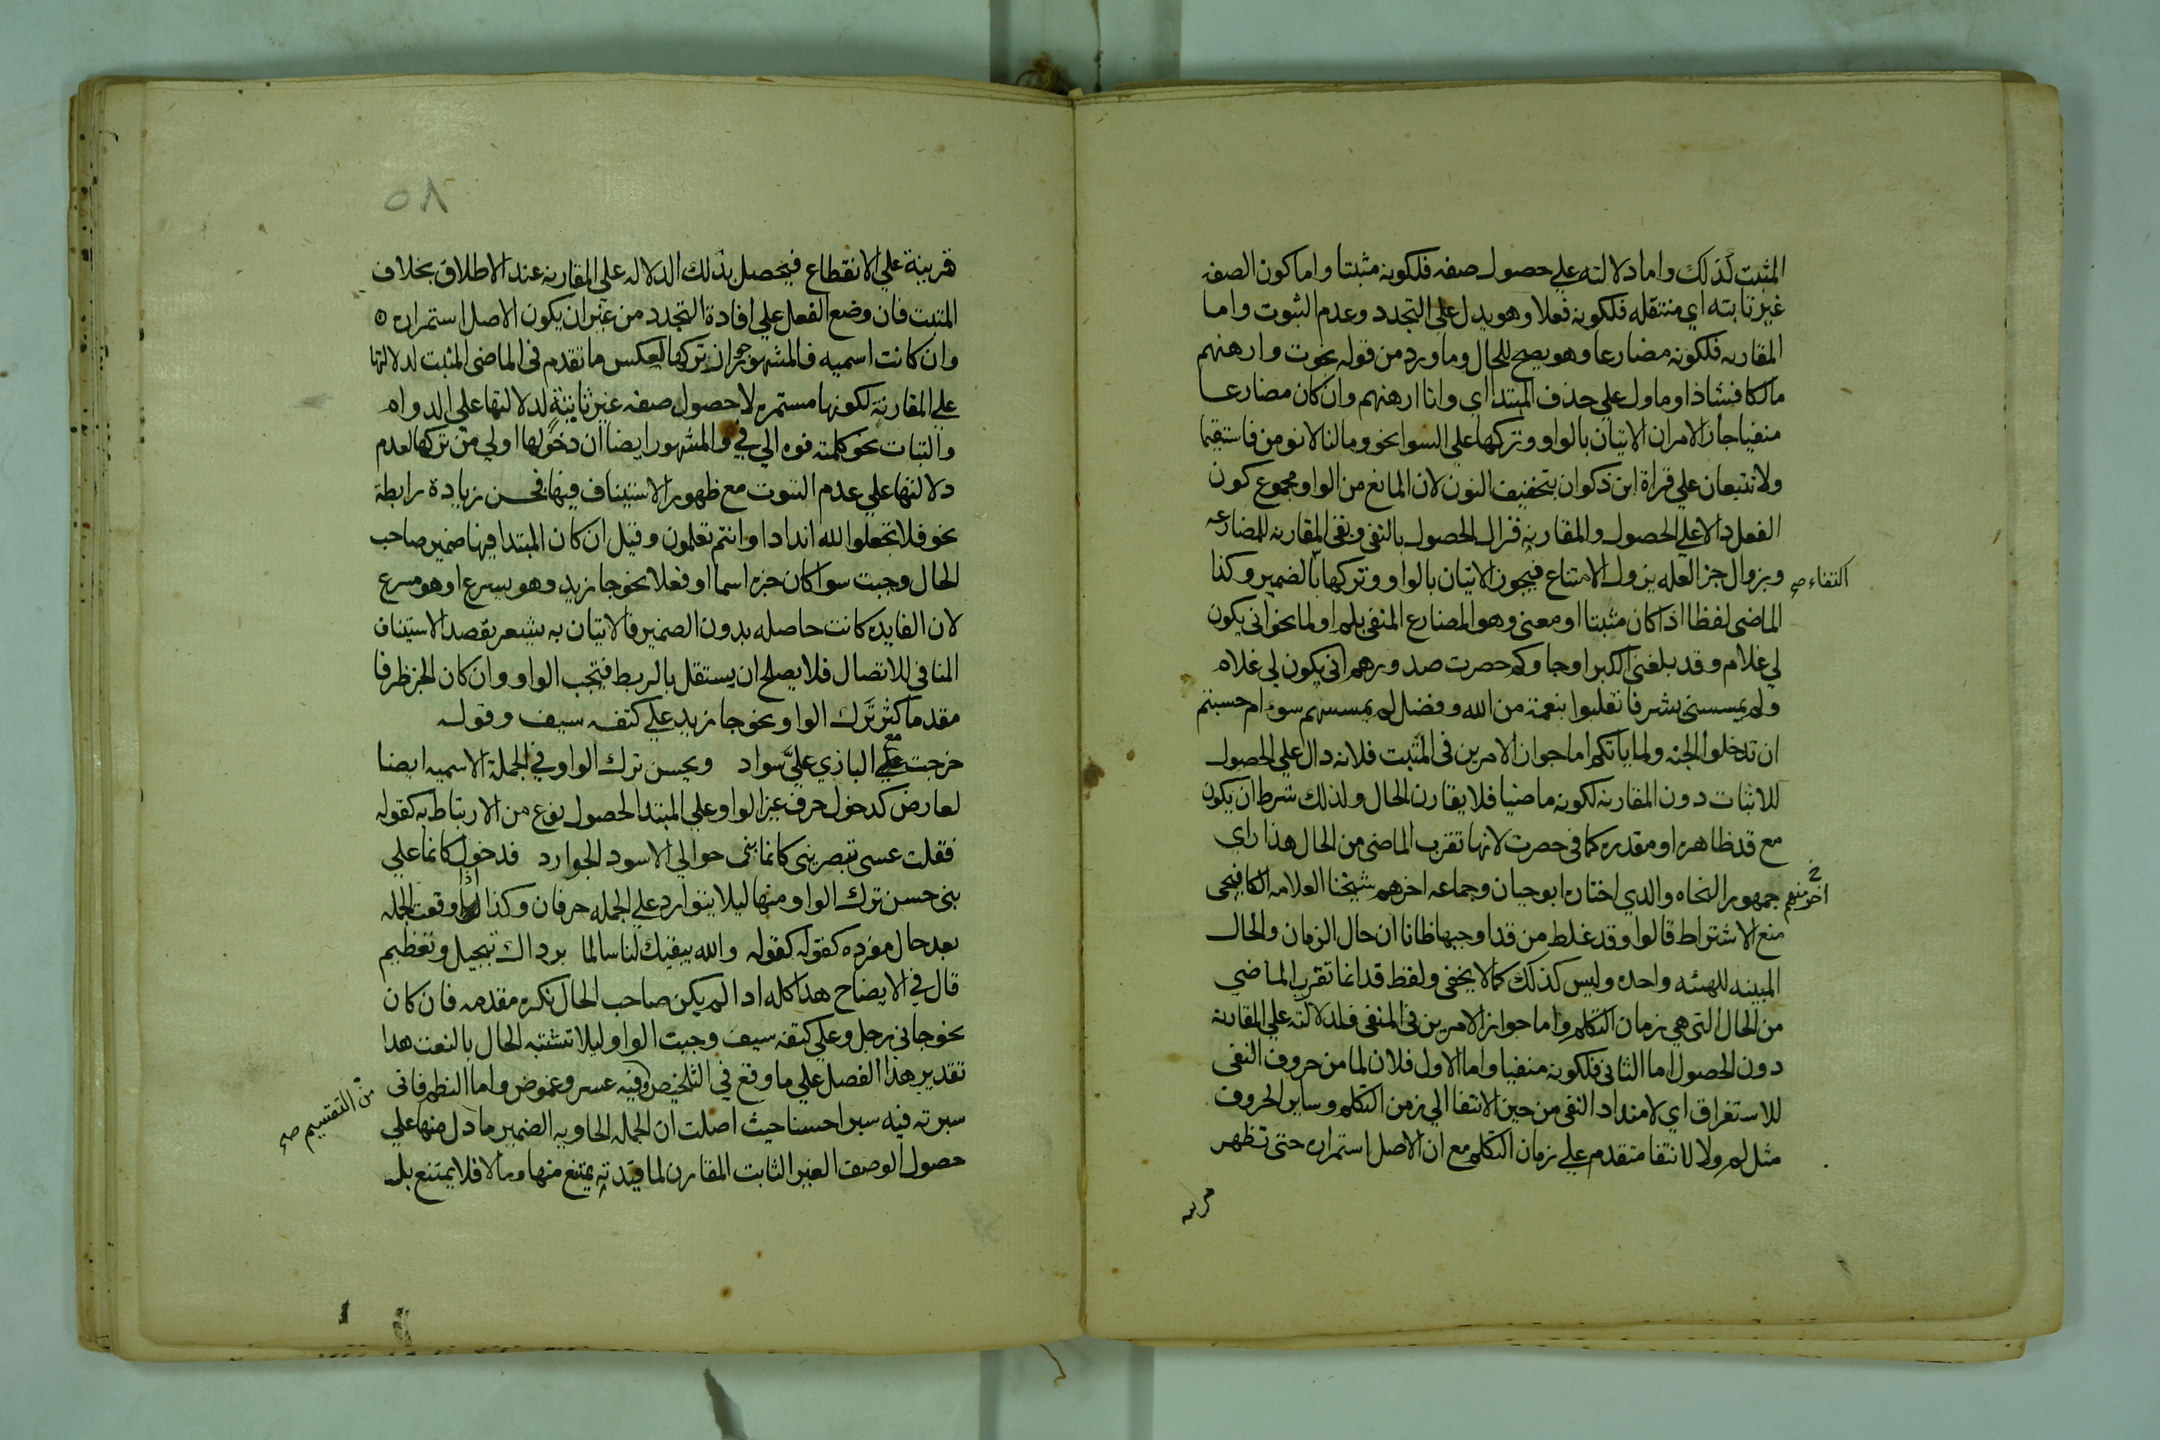 المثبت كذلك واما دلالته علي حصول صفه فلكونه مثبتا واما كون الصفه
غير ثابته اي منتقله فلكونه فعلا وهو يدل علي التجدد وعدم الثبوت واما
المقاربه فلكونه مضارعا وهو يصح للحال وما ورد من قوله نجوت وارهنهم
مالكا فشاذ او ماول علي حذف المبتدا اي وانا ارهنهم وان كان مضارعا
منفيا جاز الامران الاتيان بالواو وتركها علي السوا نحو ومالنا لا نومن فاستقيما
ولا تتبعان علي قراة ابن ذكوان بتخفيف النون لان المانع من الواو مجموع كون
الفعل دالا علي الحصول والمقاربه فزال الحصول بالنفي وبقي المقاربه للمضارعه
وبزوال جز العله يزول الامتناع فيجوز الاتيان بالواو وتركها بالضمير وكذا
اكتفاء صح
الماضي لفظا اذا كان مثبتا او معني وهو المضارع المنفي بلم او لما نحو اني يكون
لي غلام وقد بلغني الكبر او جاوكم حصرت صدورهم اني يكون لي غلام
ولم يمسسني بشر فانقلبوا بنعمة من الله وفضل لم يمسسهم سوء ام حسبتم
ان تدخلوا الجنه ولما ياتكم اما جواز الامرين في المثبت فلانه دال علي الحصول
للاثبات دون المقاربه لكونه ماضيا فلا يقارن الحال ولذلك شرط ان يكون
مع قد ظاهره او مقدره كما في حصرت لانها تقرب الماضي من الحال هذا راي
جمهور النحاه والذي اختاره ابو حيان وجماعه اخرهم شيخنا العلامه الكافيجي
اخرمنهم
منع الاشتراط قالوا وقد غلط من قد اوجبها ظانا ان حال الزمان والحال
المبينه للهيئه واحده وليس كذلك كما لا يخفي ولفظ قد انما تقرب الماضي
من الحال التي هي زمان التكلم واما جواز الامرين في المنفي فلدلالته علي المقاربه
دون الحصول اما الثاني فلكونه منفيا واما الاول فلان لما من حروف النفي
للاستغراق اي لامتداد النفي من حين الانتفا الي زمن التكلم وساير الحروف
مثل لم ولا لانتفا متقدم علي زمان التكلم مع ان الاصل استمراره حتي تظهر
قرينه
٥٨
قرينة علي الانقطاع فيحصل بذلك الدلاله علي المقاربه عند الاطلاق بخلاف
المثبت فان وضع الفعل علي افادة التجدد من غير ان يكون الاصل استمراره ٥
وان كانت اسميه فالمشهور جواز تركها لعكس ما تقدم في الماضي المثبت لدلالتها
علي المقاربة لكونها مستمره لا حصول صفه غير ثابتة لدلالتها علي الدوام
والثبات نحو كلمته فوه الي في والمشهور ايضا ان دخولها اولي من تركها لعدم
دلالتها علي عدم الثبوت مع ظهور الاستيناف فيها فحسن زيادة رابطة
نحو فلا تجعلوا لله اندادا وانتم تعلمون وقيل ان كان المبتدا فيها ضمير صاحب
الحال وجبت سوا كان خبره اسما او فعلا نحو جا زيد وهو يسرع او هو مسرع
لان الفايده كانت حاصله بدون الضمير فالاتيان به يشعر بقصد الاستيناف
المنافي للاتصال فلا يصلح ان يستقل بالربط فيتجب الواو وان كان الخبر ظرفا
مقدما كثر ترك الواو نحو جا زيد علي كتفه سيف وقوله
خرجت مع البازي علي سواد ويحسن ترك الواو في الجملة الاسميه ايضا
لعارض كدخول حرف غير الواو علي المبتدا لحصول نوع من الارتباط به كقوله
فقلت عسي تبصريني كانما بني حوالي الاسود الجوارد فدخول كانما علي
بني حسن ترك الواو منها ليلا يتوارد علي الجمله حرفان وكذا اذا وقعت الجمله
بعد حال مفرده كقوله كقوله والله يبقيك لنا سالما برداك تبجيل وتعظيم
قال في الايضاح هذا كله اذا لم يكن صاحب الحال نكره مقدمه فان كان
نحو جاني رجل وعلي كتفه سيف وجبت الواو ليلا تشتبه الحال بالنعت هذا
تقدير هذا الفصل علي ما وقع في التلخيص وفيه عسر وغموض واما النظم فاني
سبرته فيه سبرا حسنا حيث اصلت ان الجمله الحاويه الضمير ما دل منها علي
من التقسيم صح
حصول الوصف الغير الثابت المقارن لما قيدته يمتنع منها وما لا فلا يمتنع بل